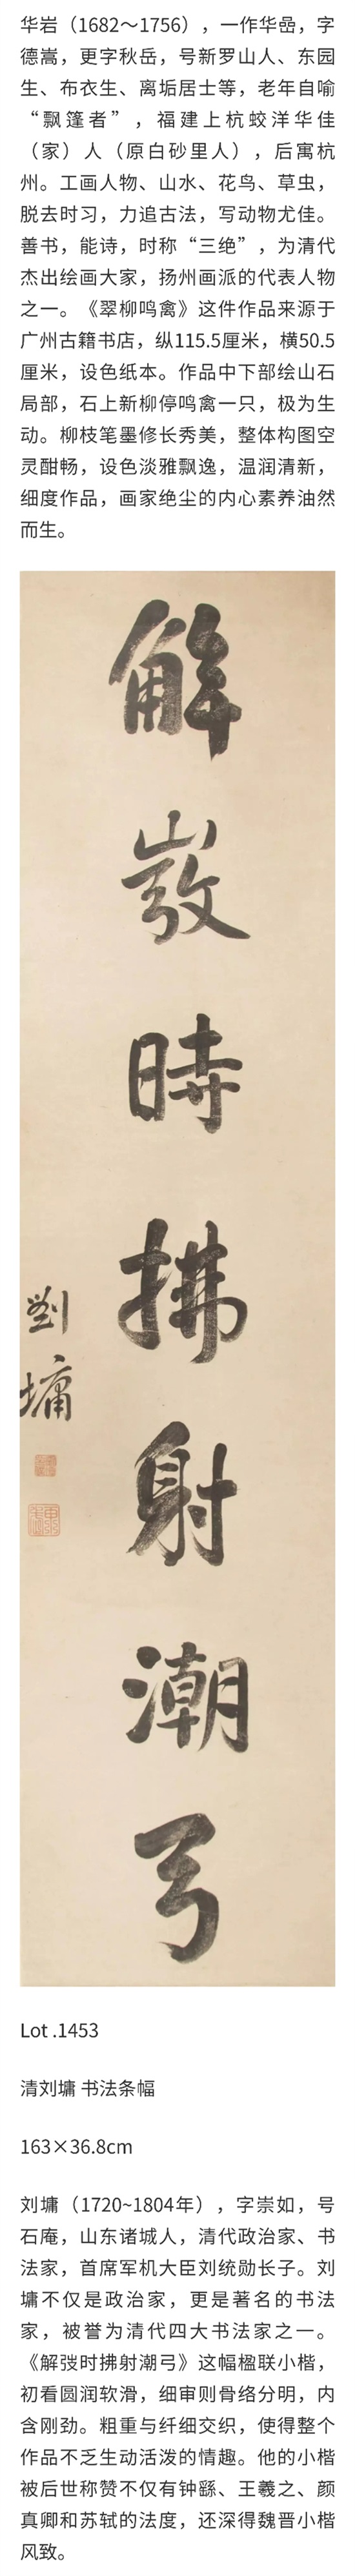 华岩（1682～1756），一作华喦，字
德嵩，更字秋岳，号新罗山人、东园
生、布衣生、离垢居士等，老年自喻
“飘篷者”，福建上杭蛟洋华佳
（家）人（原白砂里人），后寓杭
州。工画人物、山水、花鸟、草虫，
脱去时习，力追古法，写动物尤佳。
善书，能诗，时称“三绝”，为清代
杰出绘画大家，扬州画派的代表人物
之一。《翠柳鸣禽》这件作品来源于
广州古籍书店，纵115.5厘米，横50.5
厘米，设色纸本。作品中下部绘山石
局部，石上新柳停鸣禽一只，极为生
动。柳枝笔墨修长秀美，整体构图空
灵酣畅，设色淡雅飘逸，温润清新，
细度作品，画家绝尘的内心素养油然
而生。
解
時
拂
射
潮
弓
劉
墉
Lot .1453
清刘墉 书法条幅
163×36.8cm
刘墉（1720~1804年），字崇如，号
石庵，山东诸城人，清代政治家、书
法家，首席军机大臣刘统勋长子。刘
墉不仅是政治家，更是著名的书法
家，被誉为清代四大书法家之一。
《解弢时拂射潮弓》这幅楹联小楷，
初看圆润软滑，细审则骨络分明，内
含刚劲。粗重与纤细交织，使得整个
作品不乏生动活泼的情趣。他的小楷
被后世称赞不仅有钟繇、王羲之、颜
真卿和苏轼的法度，还深得魏晋小楷
风致。